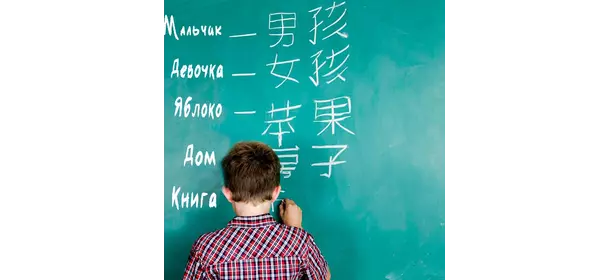 Мальчик — 男孩
Девочка — 女孩
Яблоко — 苹果
Дом 房子
Книга